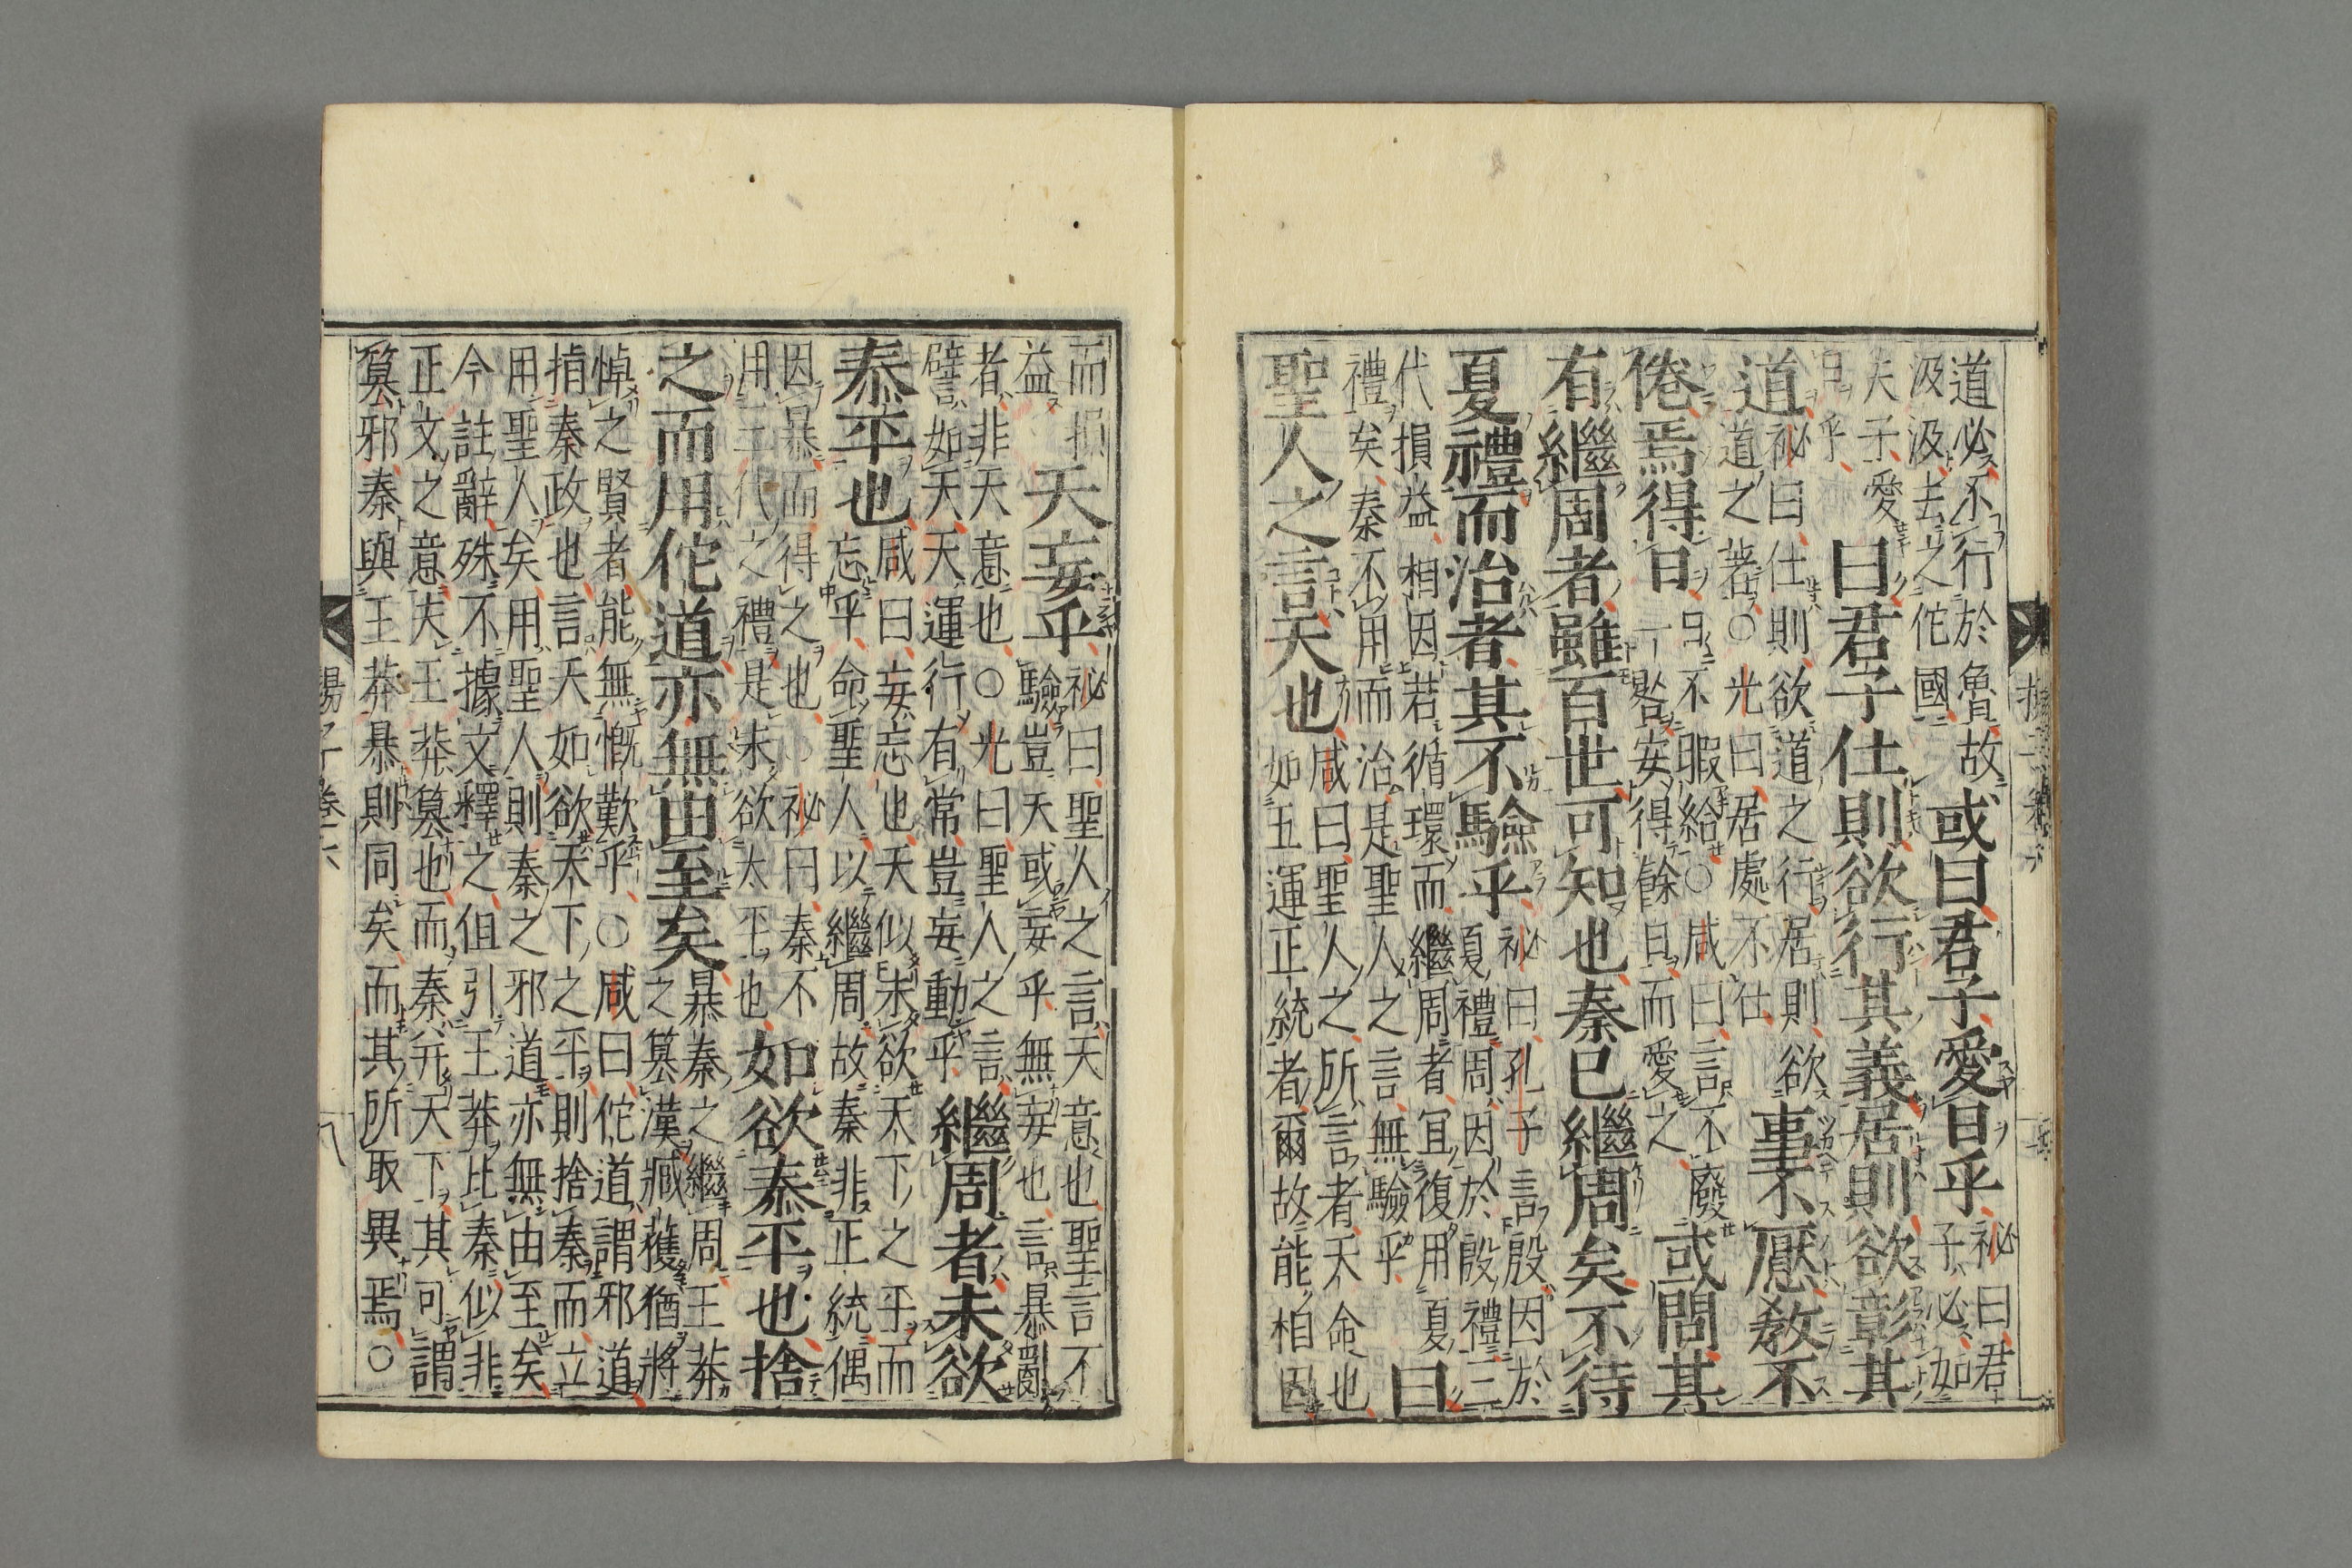 道必不行於魯故
汲汲去之佗國
或曰君子愛日乎
祕曰君
子必如
夫子愛
日乎
曰君子仕則欲行其義居則欲彰其
道
祕曰仕則欲道之行居則欲
道之著○光曰居處不仕
事不厭敎不
倦焉得日
日不暇給○咸曰言不廢
一晷安得餘日而愛之
或問其
有繼周者雖百世可知也秦已繼周矣不待
夏禮而治者其不驗乎
祕曰孔子言殷因於
夏禮周因於殷禮三
代損益相因若循環而繼周者冝復用夏
禮矣秦不用而治是聖人之言無驗乎
曰
聖人之言天也
咸曰聖人之所言者天命也
如五運正統者爾故能相因
而損
益
天妄乎
祕曰聖人之言天意也聖言不
驗豈天或妄乎無妄也言暴嬴
者非天意也○光曰聖人之言
譬如天天運行有常豈妄動乎
繼周者未欲
泰平也
咸曰妄忘也天似未欲天下之平而
忘乎命聖人以繼周故秦非正統偶
因暴而得之也 祕曰秦不
用三代之禮是未欲太平也
如欲泰平也捨
之而用佗道亦無由至矣
暴秦之繼周王莽
之篡漢臧獲猶將
悼之賢者能無慨歎乎○咸曰佗道謂邪道
指秦政也言天如欲天下之平則捨秦而立
用聖人矣用聖人則秦之邪道亦無由至矣
今註辭殊不據文釋之但引王莽比秦似非
正文之意夫王莽篡也而秦并天下其可謂
篡邪秦與王莽暴則同矣而其所取異焉○